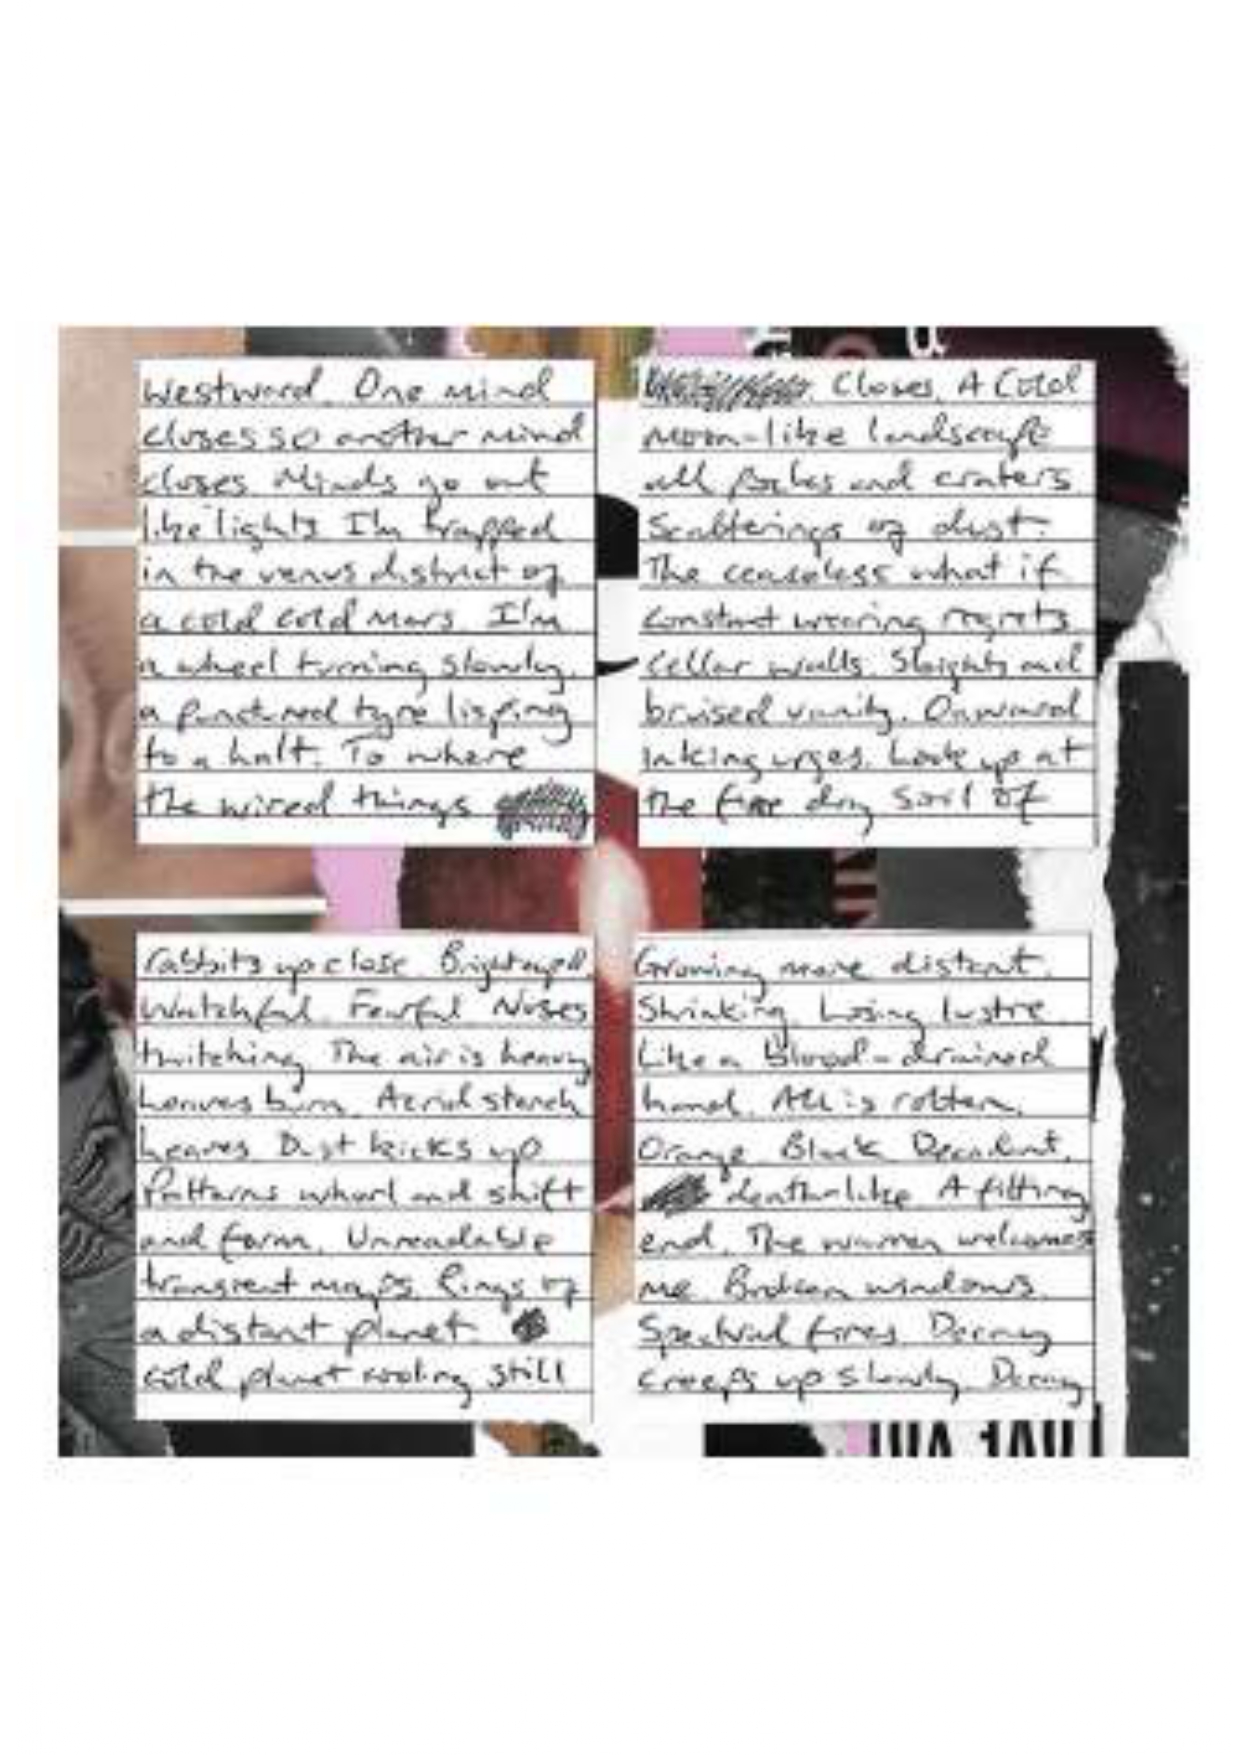 Westward. One mind
closes so another mind
closes Minds go out
like lights I'm trapped
in the venus district of
a cold cold Mars. I'm
a wheel turning slowly.
a punctured tyre lisping
to a halt. To where
the wired things
Closes. A Cold
Moon-like landscape
all pocks and craters
Scatterings of dust.
The ceaseless what if
constant wearing regrets
cellar walls. Sleights and
bruised vanity. Onward
inking urges. Look up at
the fine dry soil of
rabbits up close Brighteyed.
Watchful. Fearful Noses
twitching The air is heavy
leaves burn. Acrid stench
heaves Dust kicks up
Patterns whorl and shift
and form. Unreadable
transient maps. Rings of
a distant planet.
cold planet cooling still
Growing more distant.
Shrinking Losing lustre
Like a blood-drained
hand. All is rotten.
Orange Black Decadent.
deathlike A fitting
end. The warren welcomes
me Broken windows.
Spectral fires. Decay
creeps up slowly. Decay